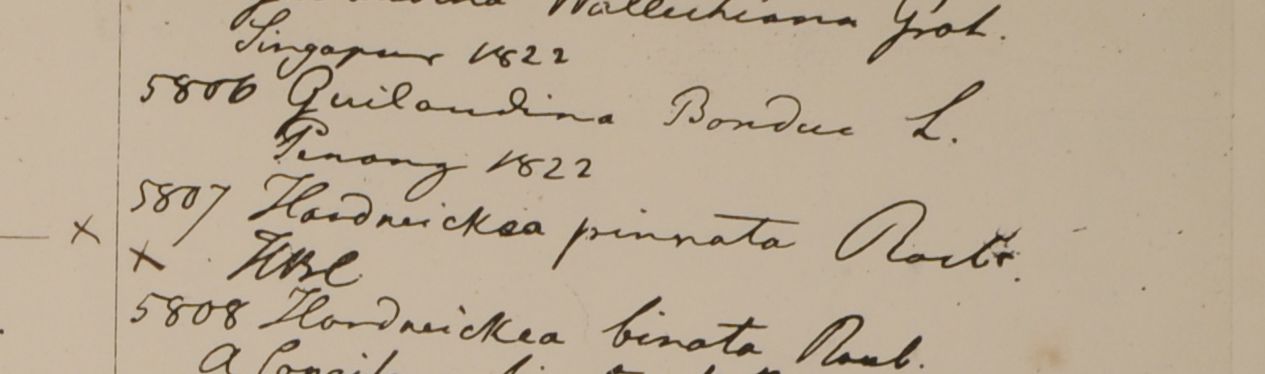 Wallichiana Grah.
Singapur 1822
5806 Guilandina Bonduc L.
Penang 1822
5807 Hardwickea pinnata Roxb.
x
x HBC
5808 Hardwickea binata Roxb.